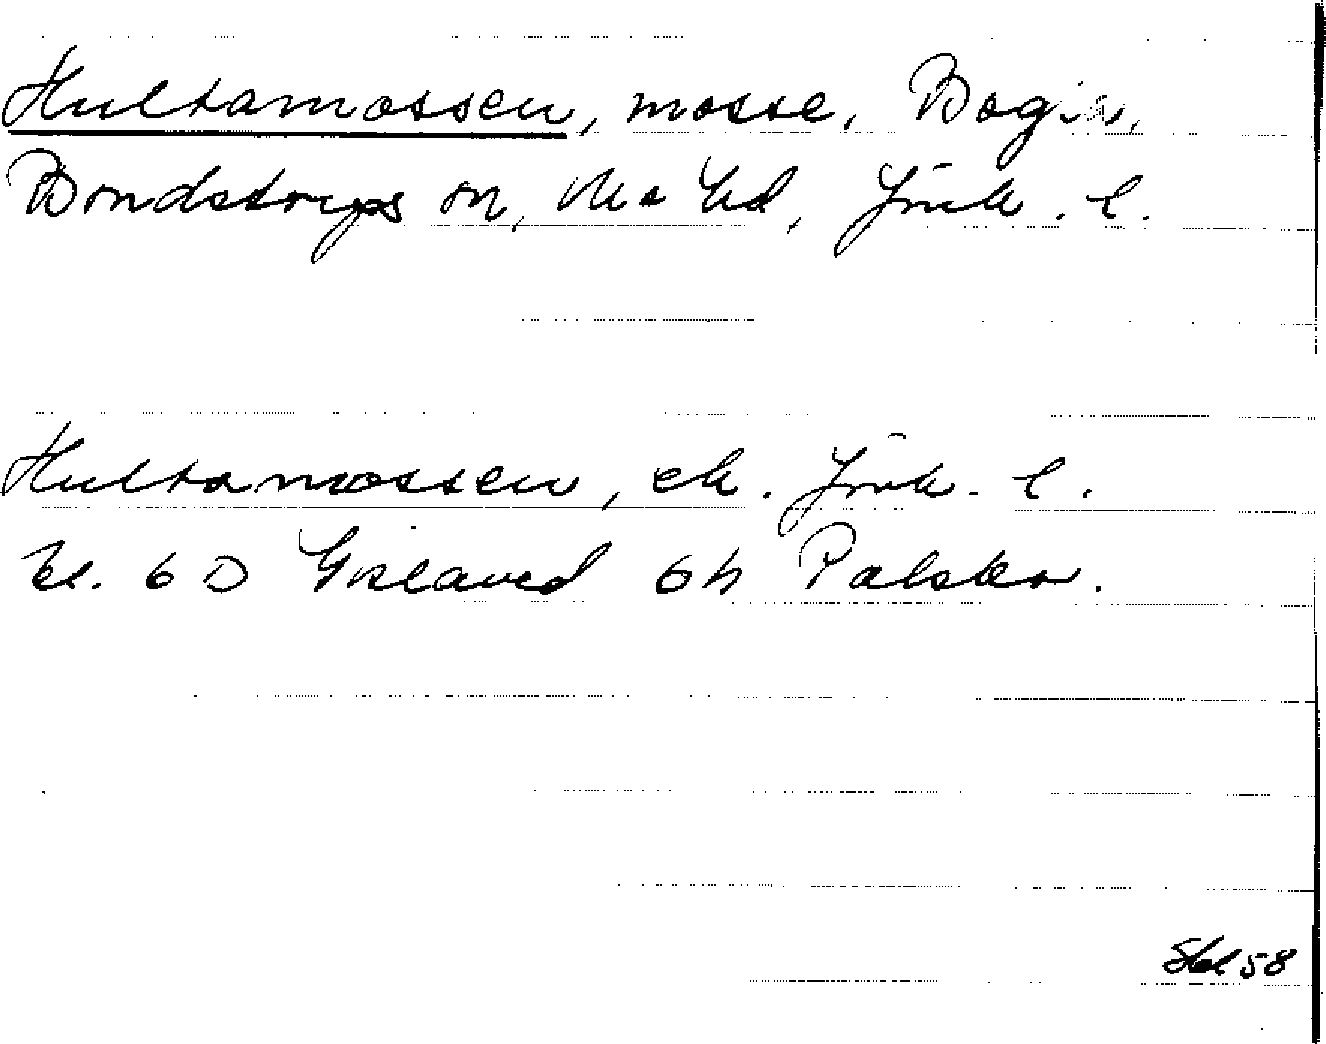 Hultamossen, mosse, Bogla,
Bondstorps sn, Mo hd, Jönk. l.
Hultamossen, ek. Jönk. l.
bl. 6 D Gislaved 6h Palsbo.
58